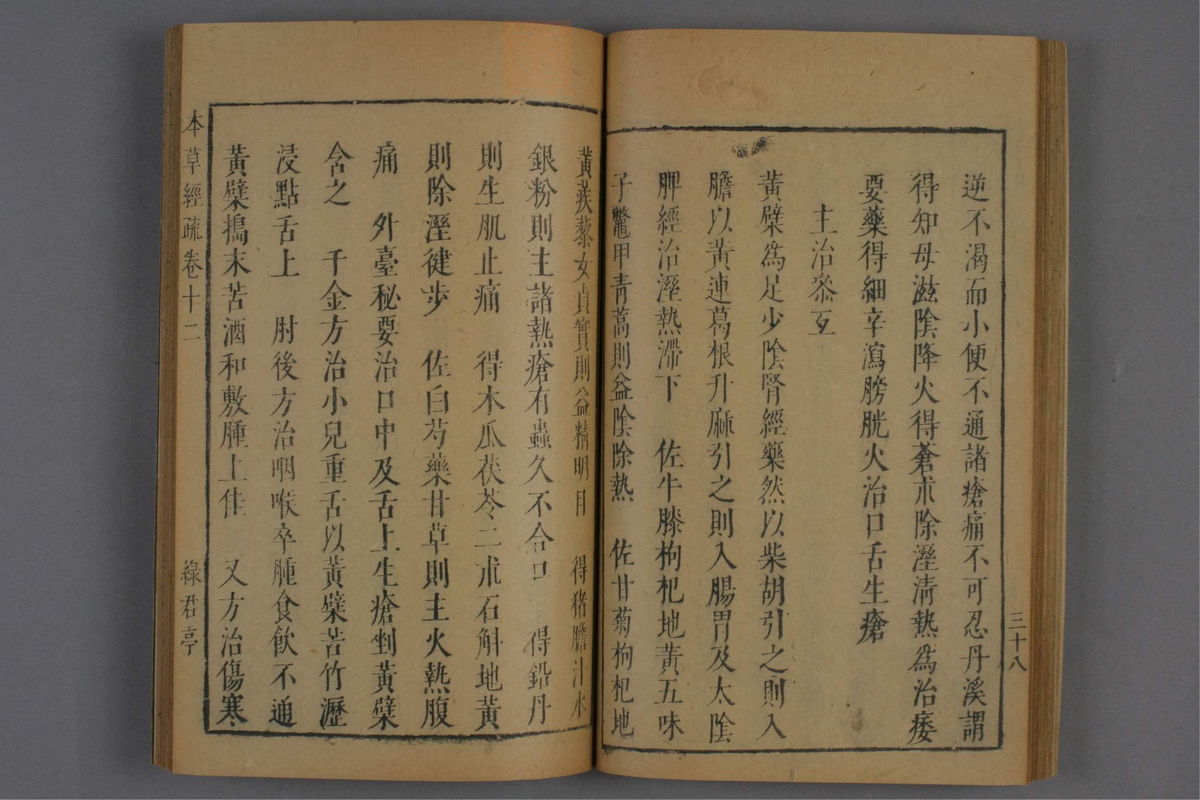 逆不渴而小便不通諸瘡痛不可忍丹溪謂
得知母滋陰降火得蒼朮除溼清熱為治痿
要藥得細辛瀉膀胱火治口舌生瘡
主治叅互
黃蘗為足少陰腎經藥然以柴胡引之則入
膽以黃連葛根升麻引之則入腸胃及太陰
脾經治溼熱滯下　佐牛膝枸杞地黃五味
子鼈甲青蒿則益陰除熱　佐甘菊枸杞地
三十八
黃蒺藜女貞實則益精明目　得猪膽汁水
銀粉則主諸熱瘡有蟲久不合口　得鉛丹
則生肌止痛　得木瓜茯苓二朮石斛地黃
則除溼健步　佐白芍藥甘草則主火熱腹
痛　外臺秘要治口中及舌上生瘡剉黃蘗
含之　千金方治小兒重舌以黃蘗苦竹瀝
浸點舌上　肘後方治咽喉卒腫食飲不通
黃蘗搗末苦酒和敷腫上佳　又方治傷寒
本草經疏卷十二
綠君亭